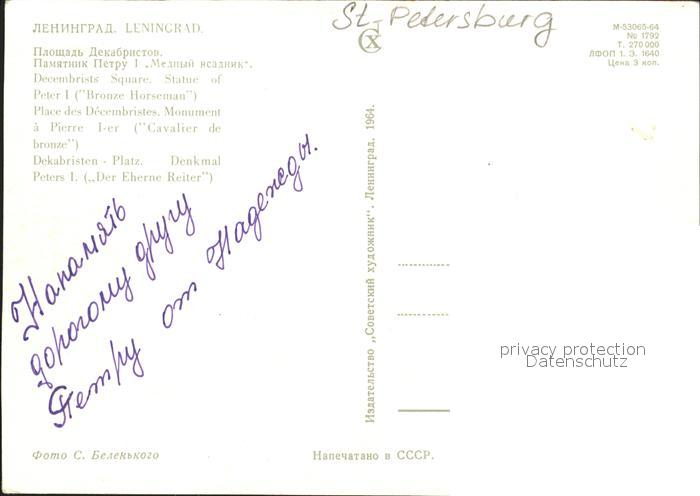 St-Petersburg
ЛЕНИНГРАД. LENINGRAD.
Площадь Декабристов.
Памятник Петру I „Медный всадник“.
Decembrists Square. Statue of
Peter I ("Bronze Horseman")
Place des Décembristes. Monument
à Pierre I-er ("Cavalier de
bronze")
Dekabristen - Platz. Denkmal
Peters I. („Der Eherne Reiter")
М-53065-64
№ 1792
Т. 270 000
ЛФОП 1. З. 1640
Цена 3 коп.
На память
дорогому другу
Петру от Надежды.
Издательство „Советский художник“. Ленинград. 1964.
privacy protection
Datenschutz
Фото С. Беленького
Напечатано в СССР.